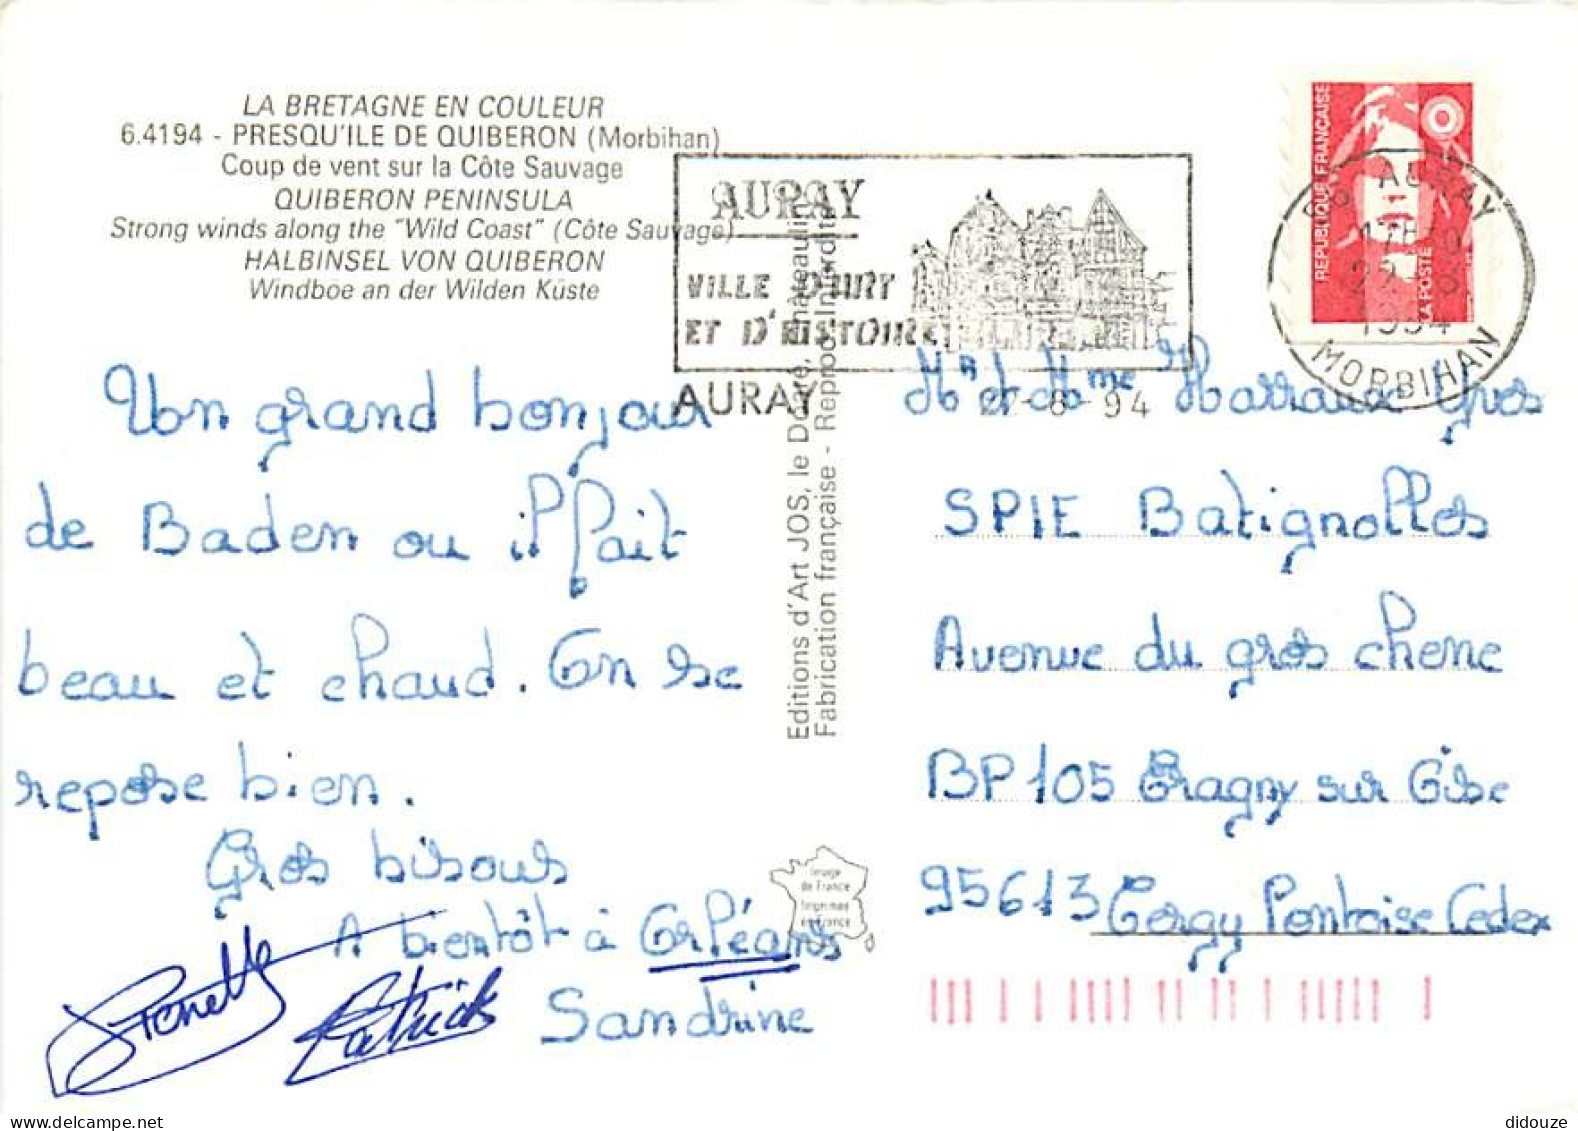 LA BRETAGNE EN COULEUR
6.4194 - PRESQU'ILE DE QUIBERON (Morbihan)
Coup de vent sur la Côte Sauvage
QUIBERON PENINSULA
Strong winds along the "Wild Coast" (Côte Sauvage)
HALBINSEL VON QUIBERON
Windboe an der Wilden Küste
AURAY
VILLE D'ART
ET D'HISTOIRE
AURAY
22-8-94
RÉPUBLIQUE FRANÇAISE
LA POSTE
56 AURAY
22-8
1994
MORBIHAN
Un grand bonjour
de Baden ou il fait
beau et chaud. On se
repose bien.
Gros bisous
A bientôt à Orléans
Sandrine
Patrick
Editions d'Art JOS, le Doaré, Châteaulin
Fabrication française - Reproc. Interdite
Image
de France
Imprimée
en France
Mr et Mme Harraux Yves
SPIE Batignolles
Avenue du gros chene
BP 105 Eragny sur Oise
95613 Cergy Pontoise Cedex
didouze